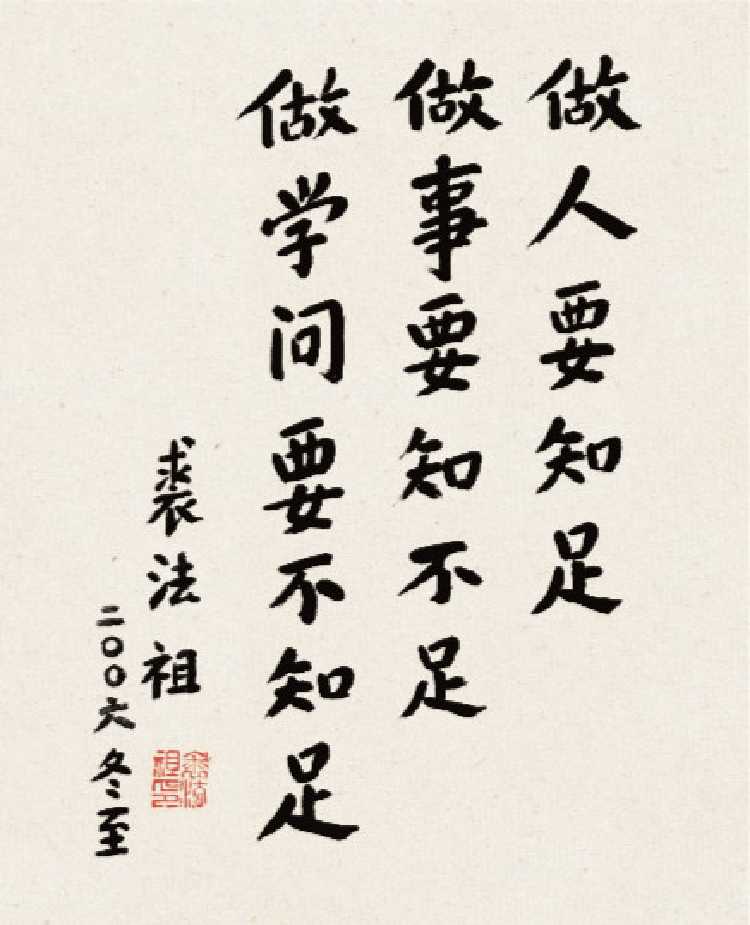 做人要知足
做事要知不足
做学问要不知足
裘法祖
二〇〇六冬至
裘法祖印